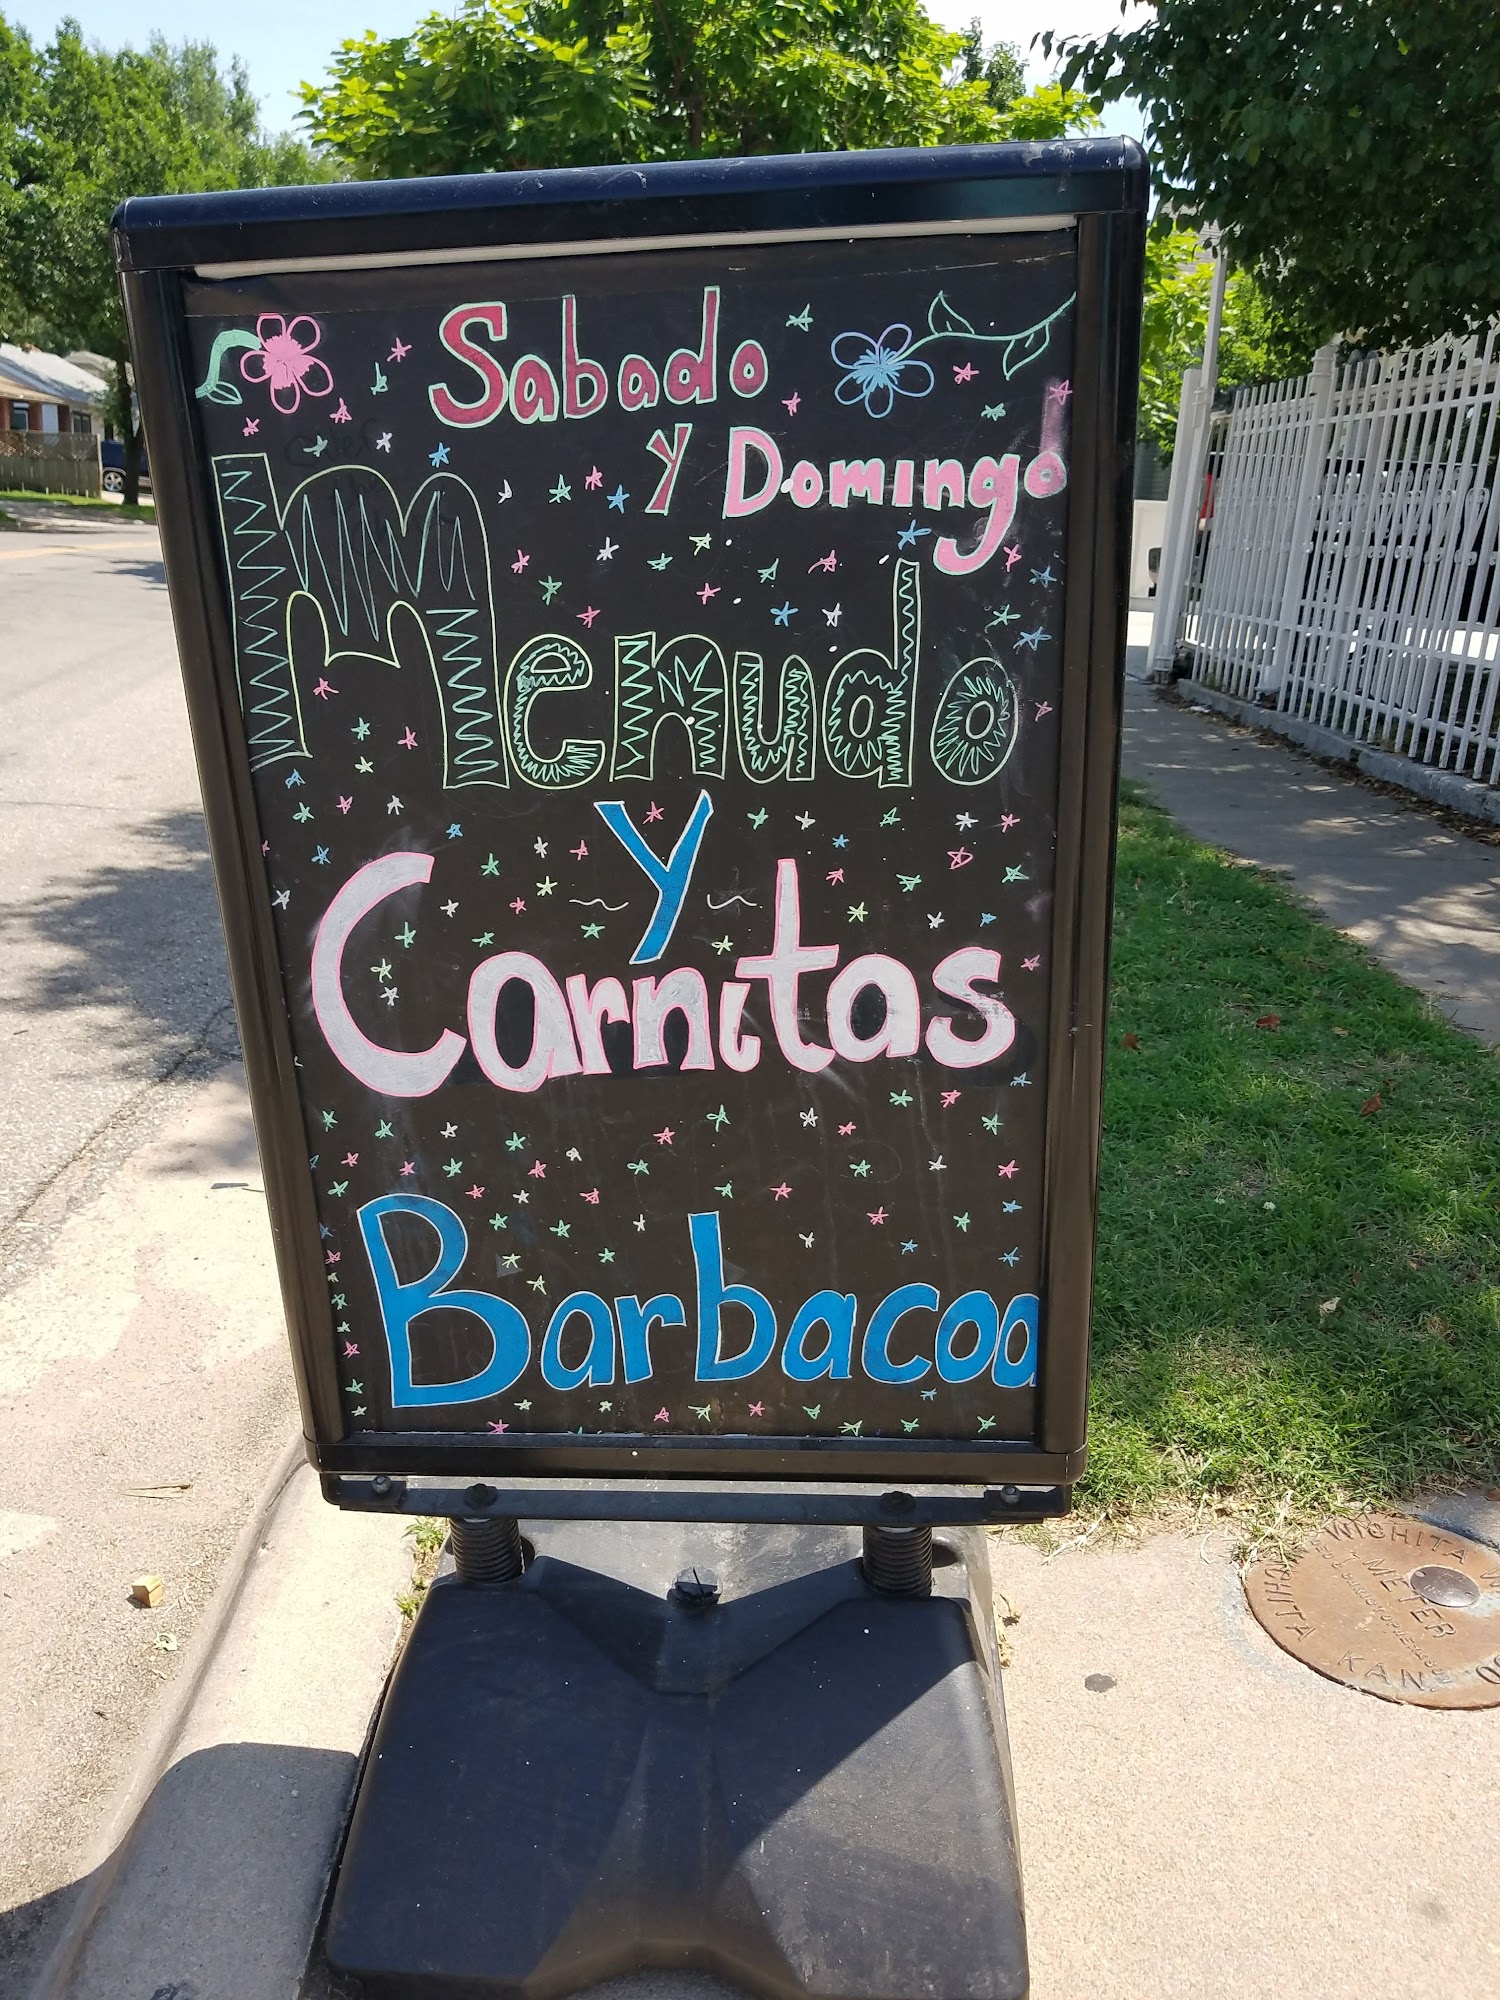 Sabado
y Domingo
Menudo
y
Carnitas
Barbacoa
WICHITA
METER
WICHITA
KAN